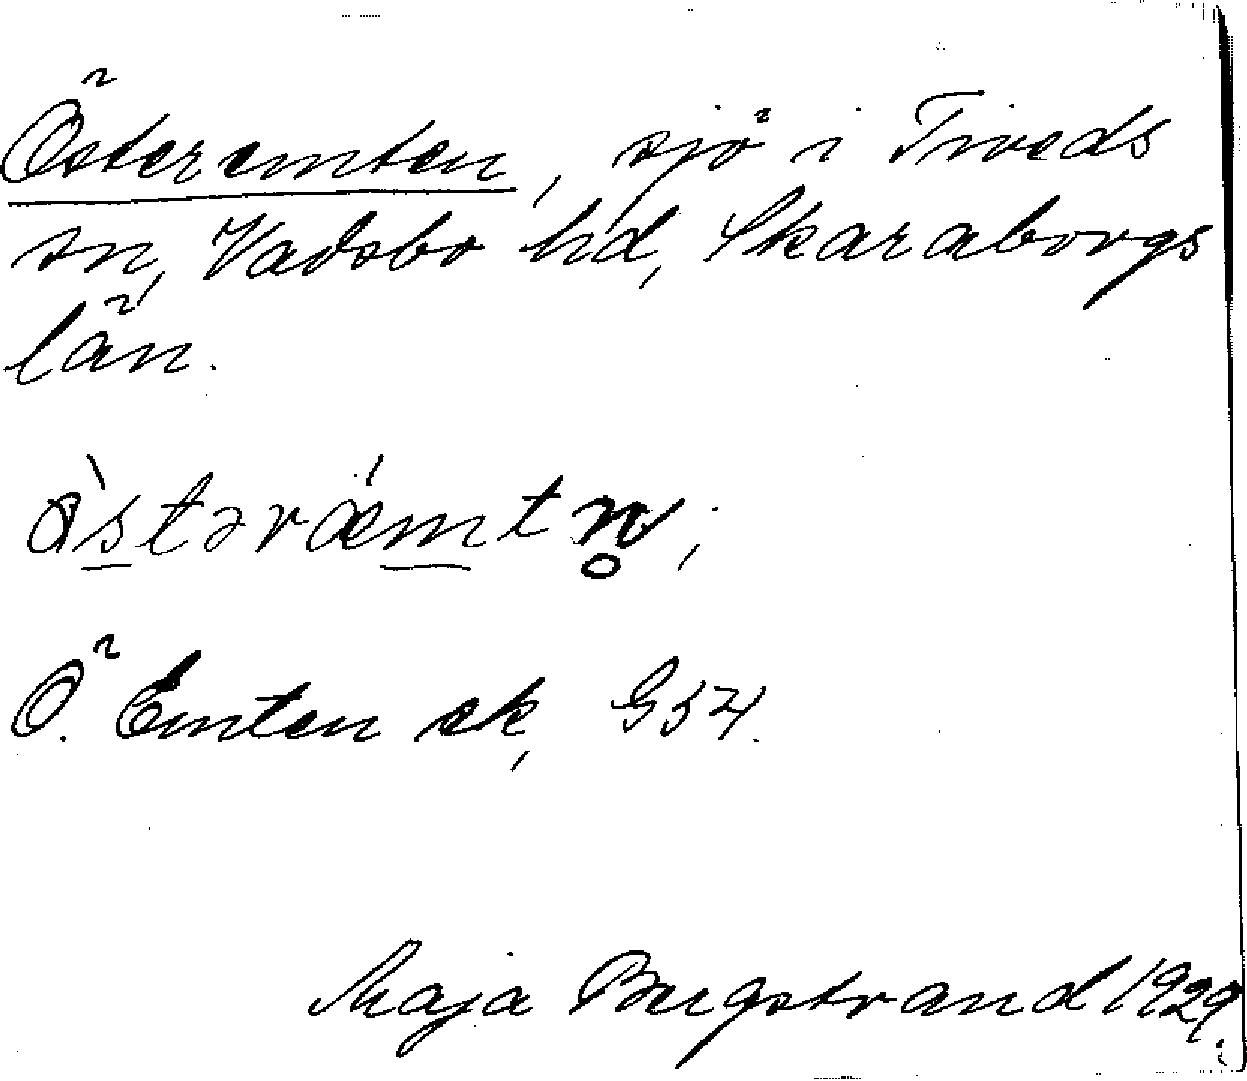 Österemten, sjö i Tiveds
sn, Vadsbo hd, Skaraborgs
län.
ö̀stərǽmtn̥;
Ö. Emten ek, G54.
Maja Bergstrand 1929.